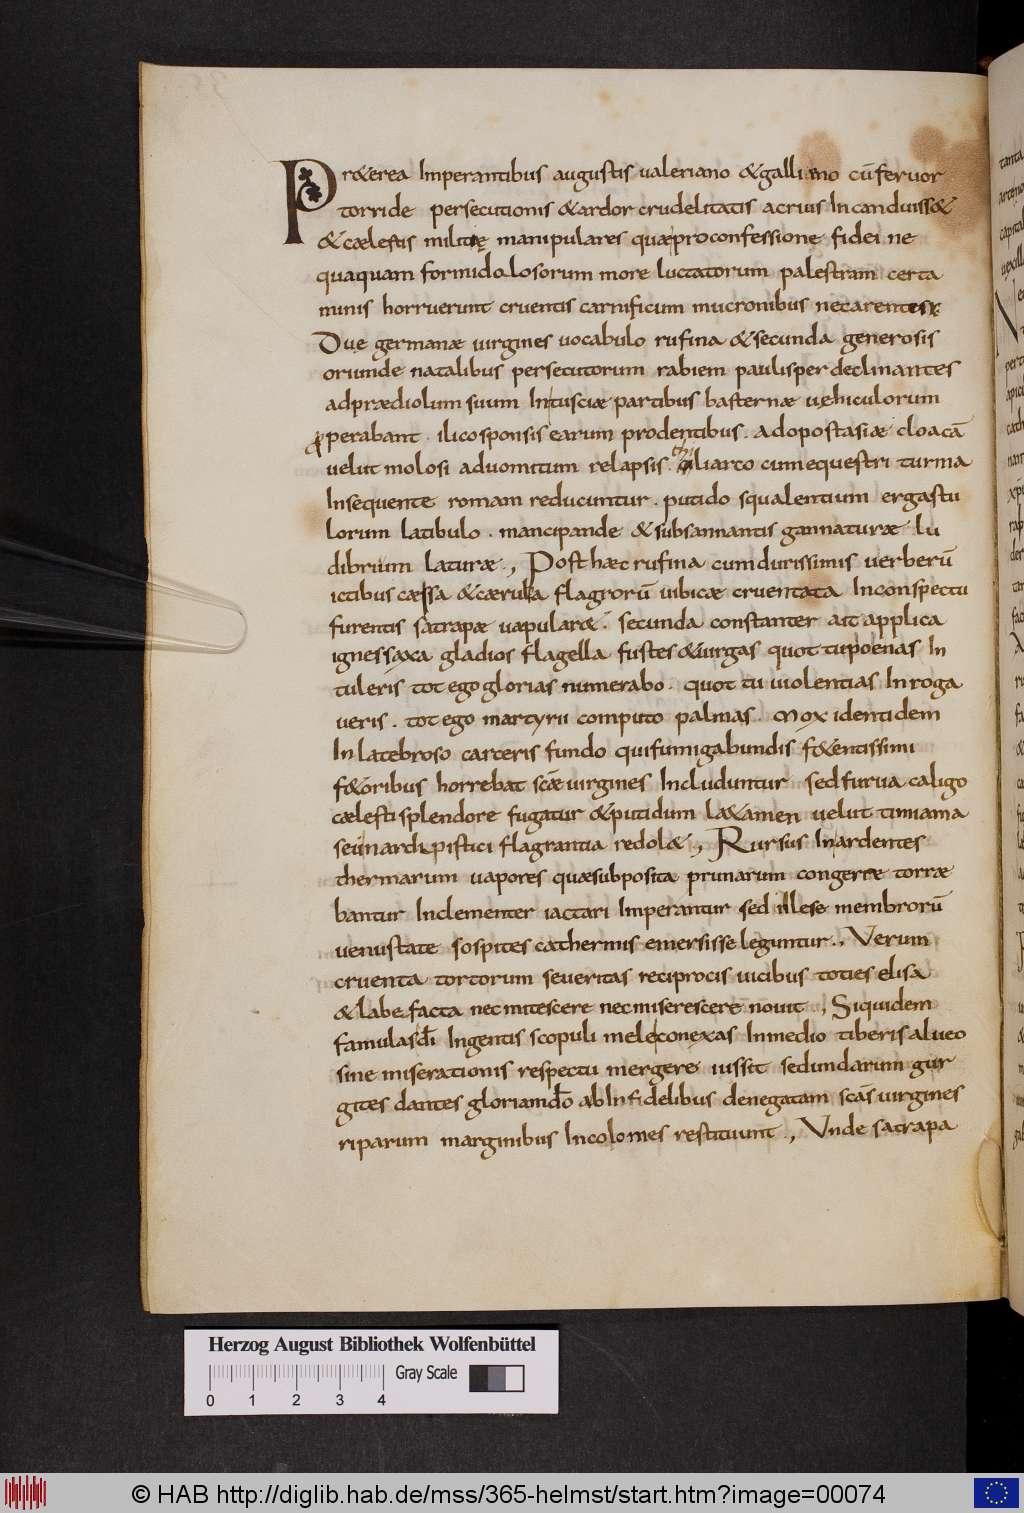 Pr&erea Imperantibus augustis valeriano &gallieno cū feruor
torride persecutionis &ardor crudelitatis acrius Incanduiss&
&cælestis militię manipulares quæproconfessione fidei ne
quaquam formidolosorum more luctatorum palestram certa
minis horruerunt cruentis carnificum mucronibus necarentes
Due germanæ uirgines uocabulo rufina &secunda generosis
oriunde natalibus persecutorum rabiem paulisper declinantes
adprædiolum suum Intusciæ partibus basternæ uehiculorum
ꝓperabant. ilicosponsis earum prodentibus. Adopostasiæ cloacā
uelut molosi aduomitum relapsis. chiliarco cumequestri turma
Insequente romam reducuntur. putido squalentium ergastu
lorum latibulo. mancipande &subsannantis gannaturæ lu
dibrium laturæ., Posthæc rufina cumdurissimis uerberū
ictibus cæssa &cærula flagrorū uibicæ cruentata Inconspectu
furentis satrapæ uapular&. secunda constanter ait applica
ignes saxa gladios flagella fustes &uirgas quot tupoenas In
tuleris tot ego glorias numerabo. quot tu uiolentias Inroga
ueris. tot ego martyrii computo palmas. Mox identidem
In latebroso carceris fundo quifumigabundis f&entissimi
f&oribus horrebat scæ uirgines Includuntur sed furua caligo
cælesti splendore fugatur &putidum la&amen uelut timiama
seu nardi pistici flagrantia redol&., Rursus In ardentes
thermarum uapores quæsubposita prunarum congeriæ torræ
bantur Inclementer iactari Imperantur sed illese membrorū
uenustate sospites cathermis emersisse leguntur., Verum
cruenta tortorum seueritas reciprocis uicibus toties elisa
&labefacta necmitescere necmiserescere nouit., Siquidem
famulas dī Ingentis scopuli mole conexas Inmedio tiberis alueo
sine miserationis respectu mergere iussit sedundarum gur
gites dantes gloriam dō abInfidelibus denegatam scās uirgines
riparum marginibus Incolomes restituunt., Vnde satrapa
Herzog August Bibliothek Wolfenbüttel
Gray Scale
0 1 2 3 4
© HAB http://diglib.hab.de/mss/365-helmst/start.htm?image=00074